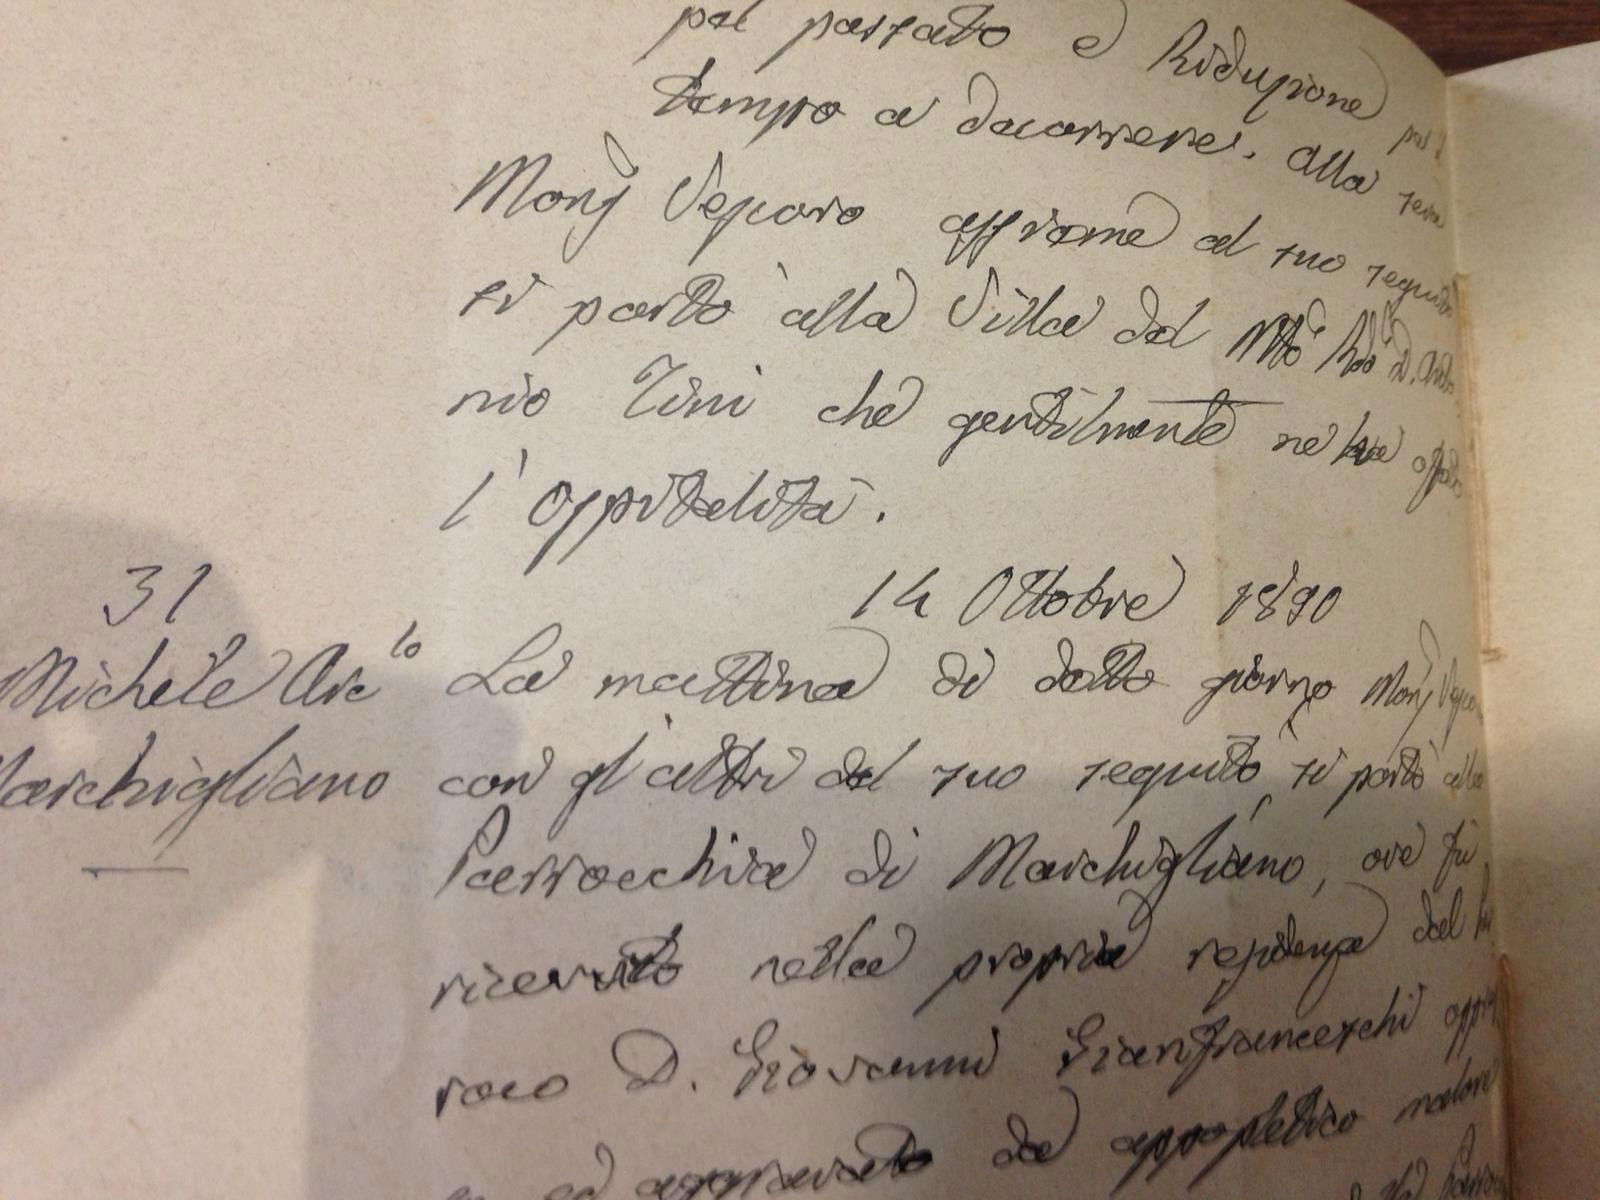 pel passato e Riduzione pel
tempo a decorrere. Alla sera
Monsʳ Vescovo assieme al suo seguito
si portò alla Villa del Mto Rdo D. Anto-
nio Tini che gentilmente ne ha offerto
l'ospitalità.
14 Ottobre 1890
31
Michele Arclo
Marchigliano
La mattina di detto giorno Monsʳ Vescovo
con gl'altri del suo seguito si portò alla
Parrocchia di Marchigliano, ove fù
ricevuto nella propria residenza dal
roco D. Giovanni Gianfranceschi
ed aggravato da appopletico malore